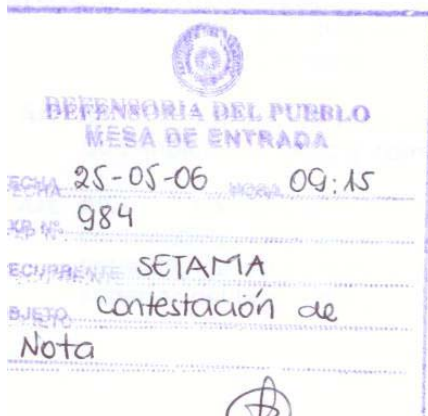 DEFENSORIA DEL PUEBLO
MESA DE ENTRADA
ECHA 25-05-06 HORA 09:15
XP. Nº 984
ECURRENTE SETAMA
BJETO contestación de
Nota